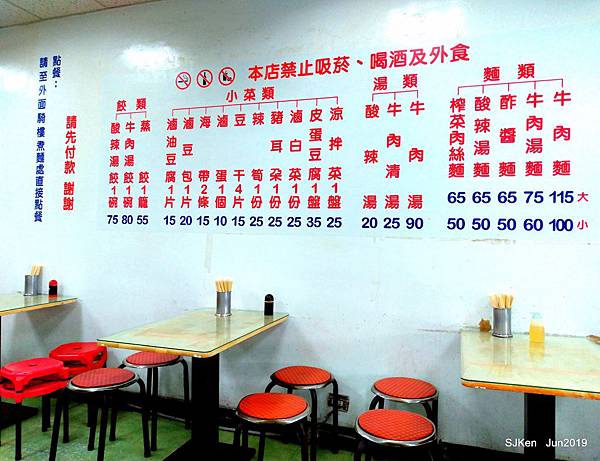 點餐：
請至外面騎樓煮麵處直接點餐
請先付款 謝謝
本店禁止吸菸、喝酒及外食
餃類
酸辣湯餃1碗 75
牛肉湯餃1碗 80
蒸餃1籠 55
小菜類
滷油豆腐1片 15
滷豆包1片 20
海帶2條 15
滷蛋1個 10
豆干4片 15
辣筍1份 25
豬耳朵1份 25
滷白菜1份 25
皮蛋豆腐1盤 35
涼拌菜1盤 25
湯類
酸辣湯 20
牛肉清湯 25
牛肉湯 90
麵類
榨菜肉絲麵 65 50
酸辣湯麵 65 50
酢醬麵 65 50
牛肉湯麵 75 60
牛肉麵 115 100
大
小
SJKen Jun2019